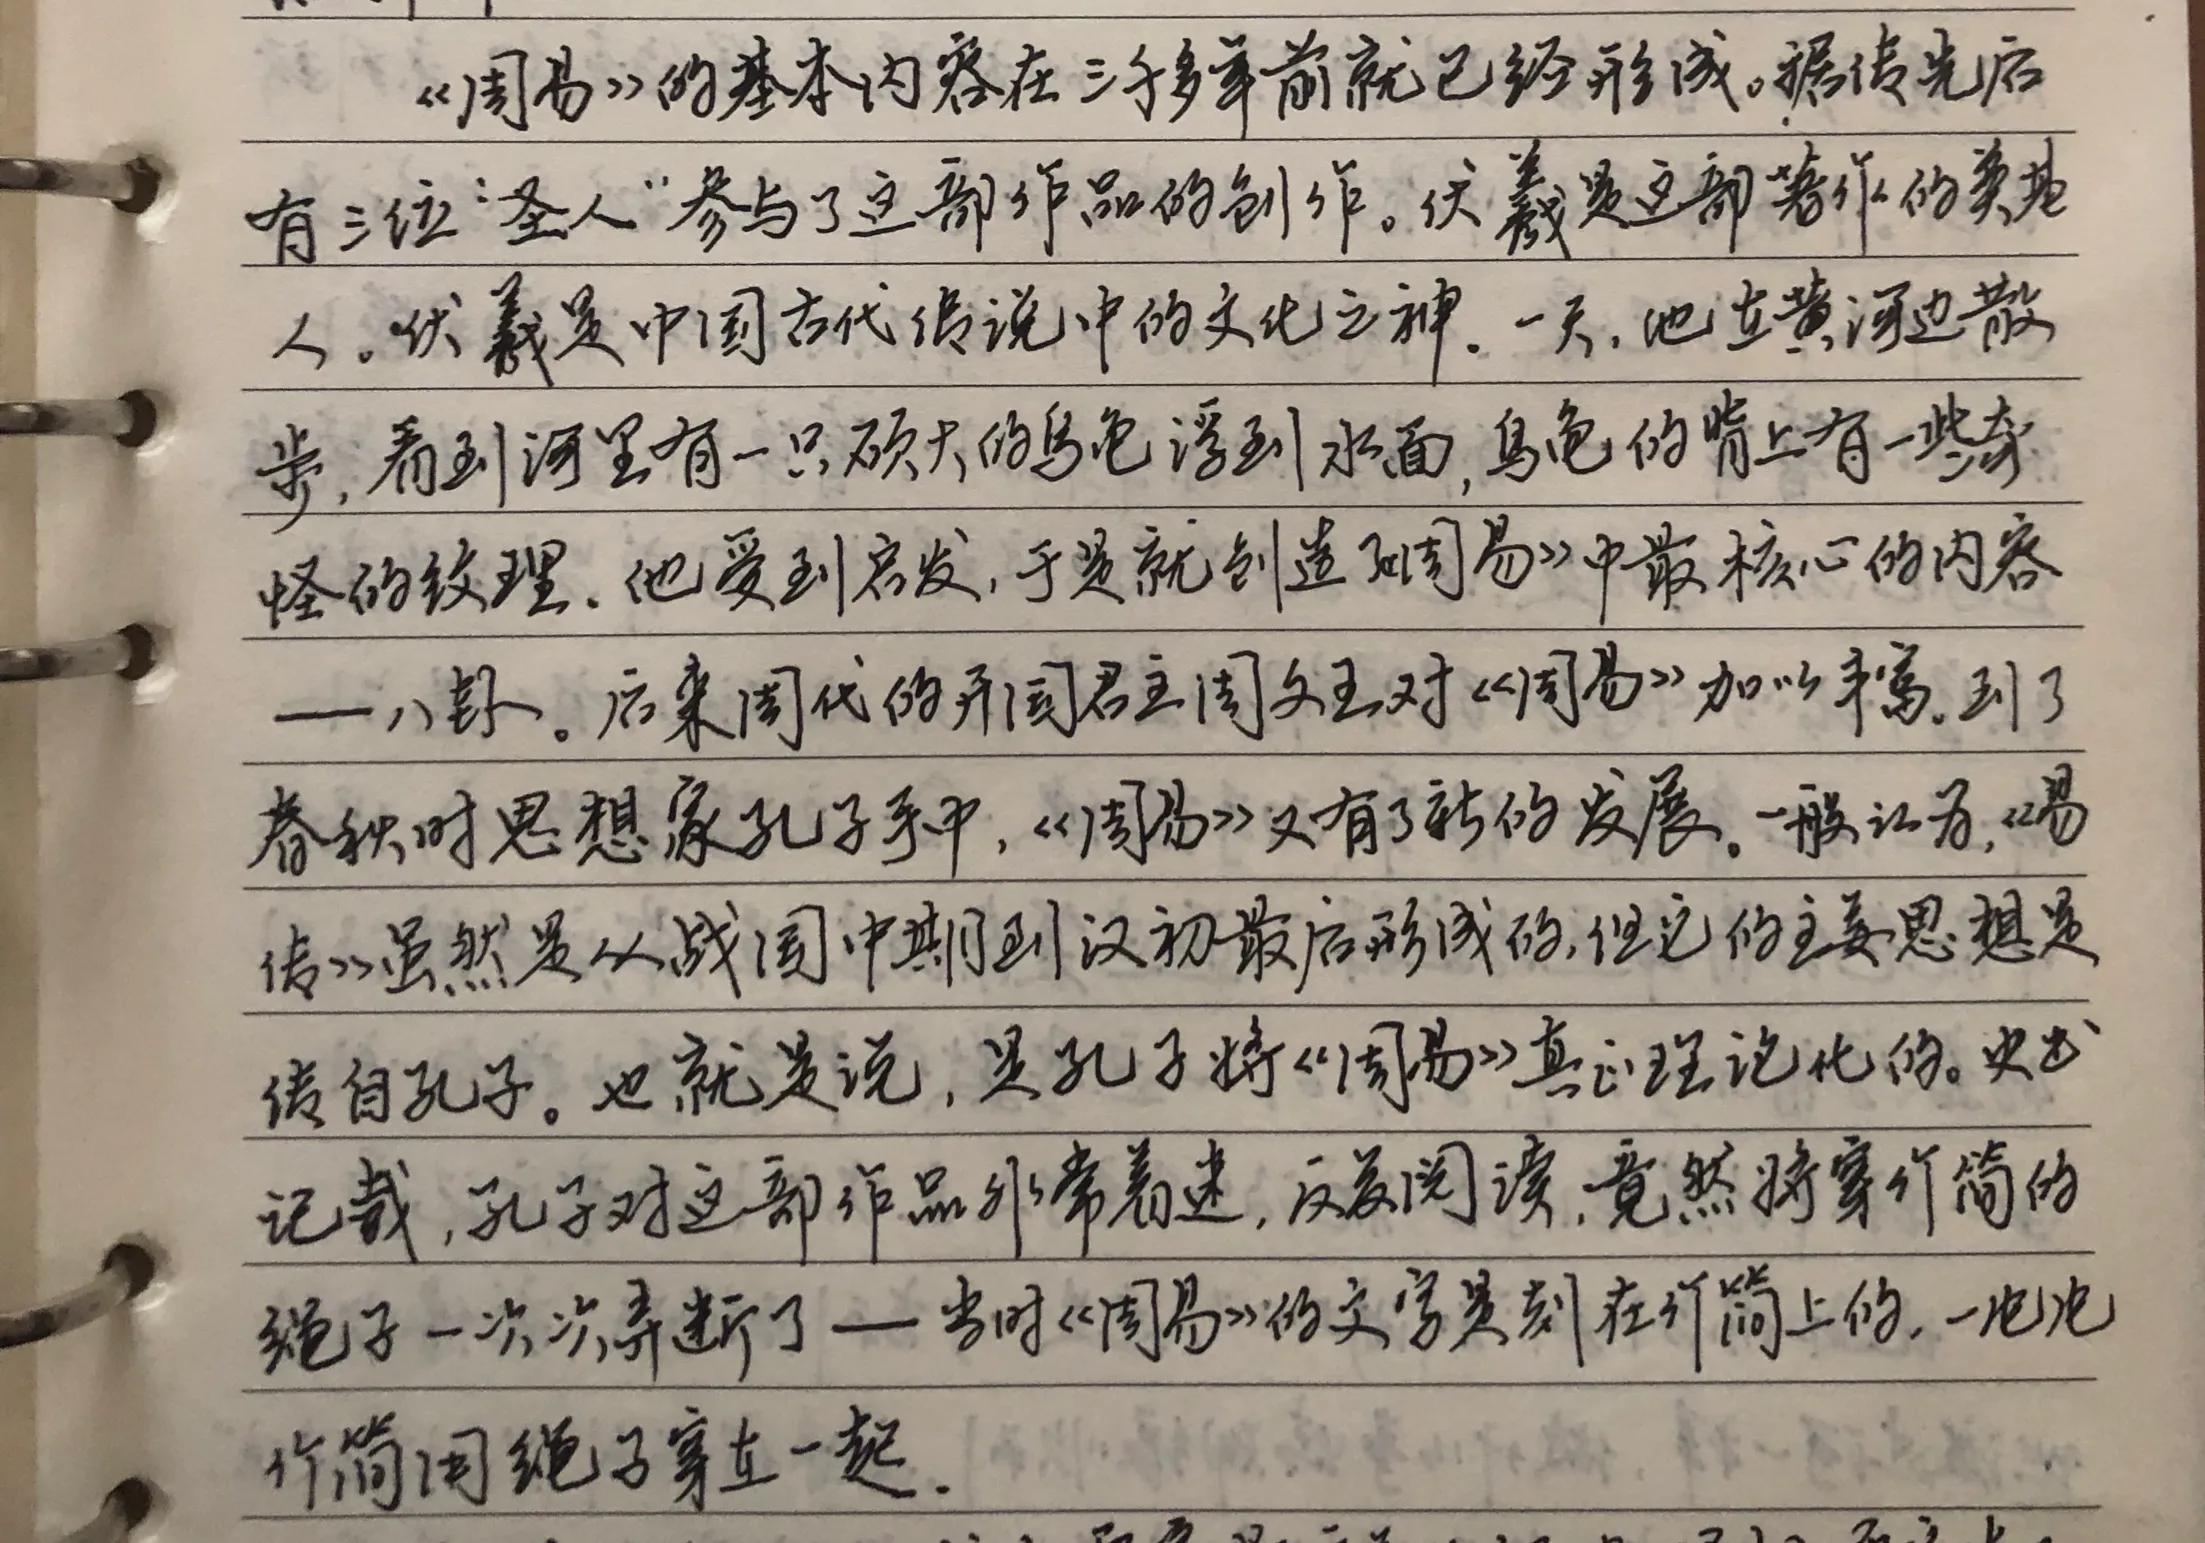 《周易》的基本内容在三千多年前就已经形成。据传先后
有三位“圣人”参与了这部作品的创作。伏羲是这部著作的奠基
人。伏羲是中国古代传说中的文化之神。一天，他在黄河边散
步，看到河里有一只硕大的乌龟浮到水面，乌龟的背上有一些奇
怪的纹理。他受到启发，于是就创造了《周易》中最核心的内容
——八卦。后来周代的开国君主周文王对《周易》加以丰富。到了
春秋时思想家孔子手中，《周易》又有了新的发展。一般认为，《易
传》虽然是从战国中期到汉初最后形成的，但它的主要思想是
传自孔子。也就是说，是孔子将《周易》真正理论化的。史书
记载，孔子对这部作品非常着迷，反复阅读，竟然将穿竹简的
绳子一次次弄断了——当时《周易》的文字是刻在竹简上的，一片片
竹简用绳子穿在一起。